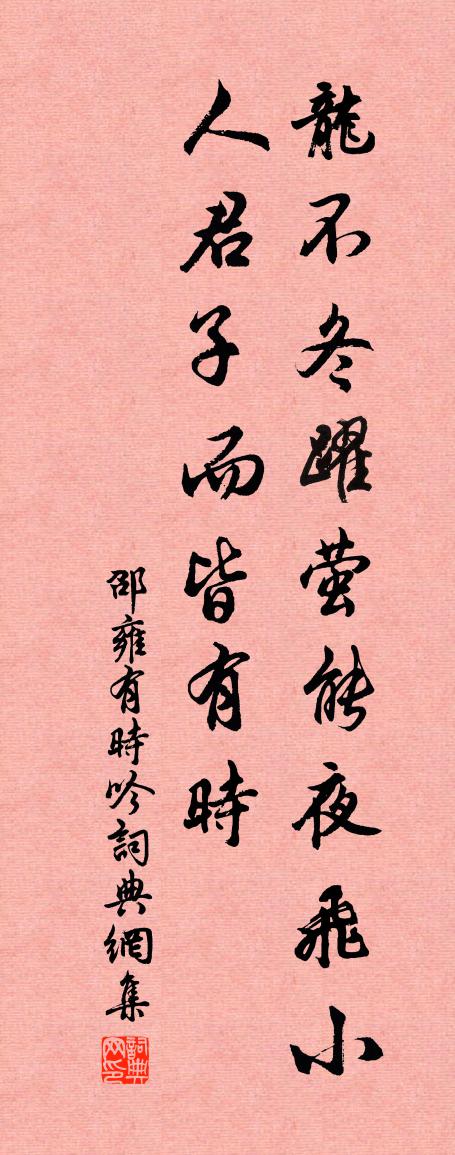 龍不冬躍螢能夜飛小
人君子而皆有時
邵雍有時吟詞典網集
詞典网印